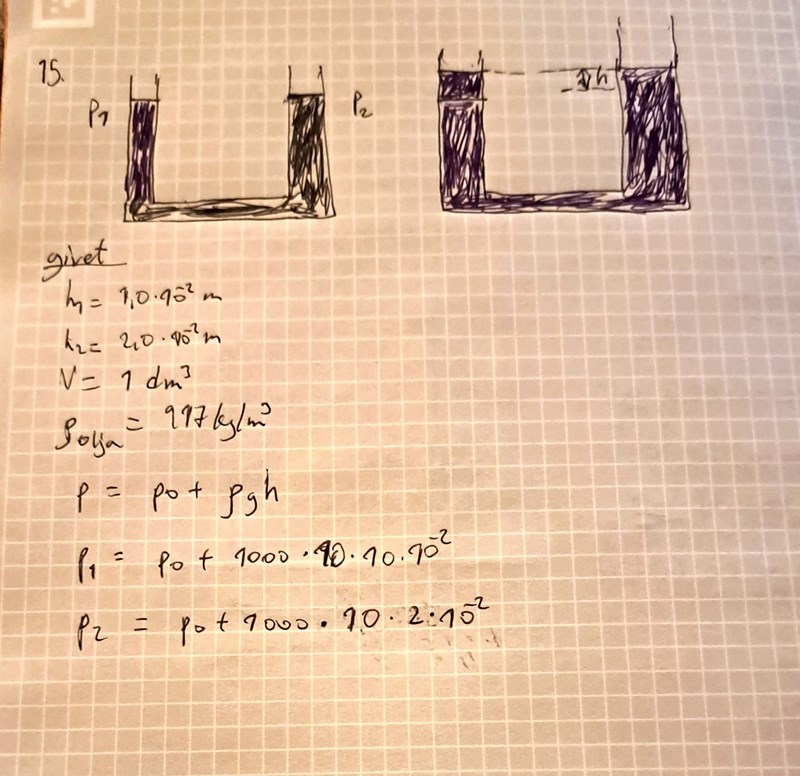 15.
P1
P2
h
givet
h1 = 1,0 · 10⁻² m
h2 = 2,0 · 10⁻² m
V = 1 dm³
ρolja = 917 kg/m³
p = p0 + ρgh
p1 = p0 + 1000 · 10 · 10 · 10⁻²
p2 = p0 + 1000 · 10 · 2 · 10⁻²